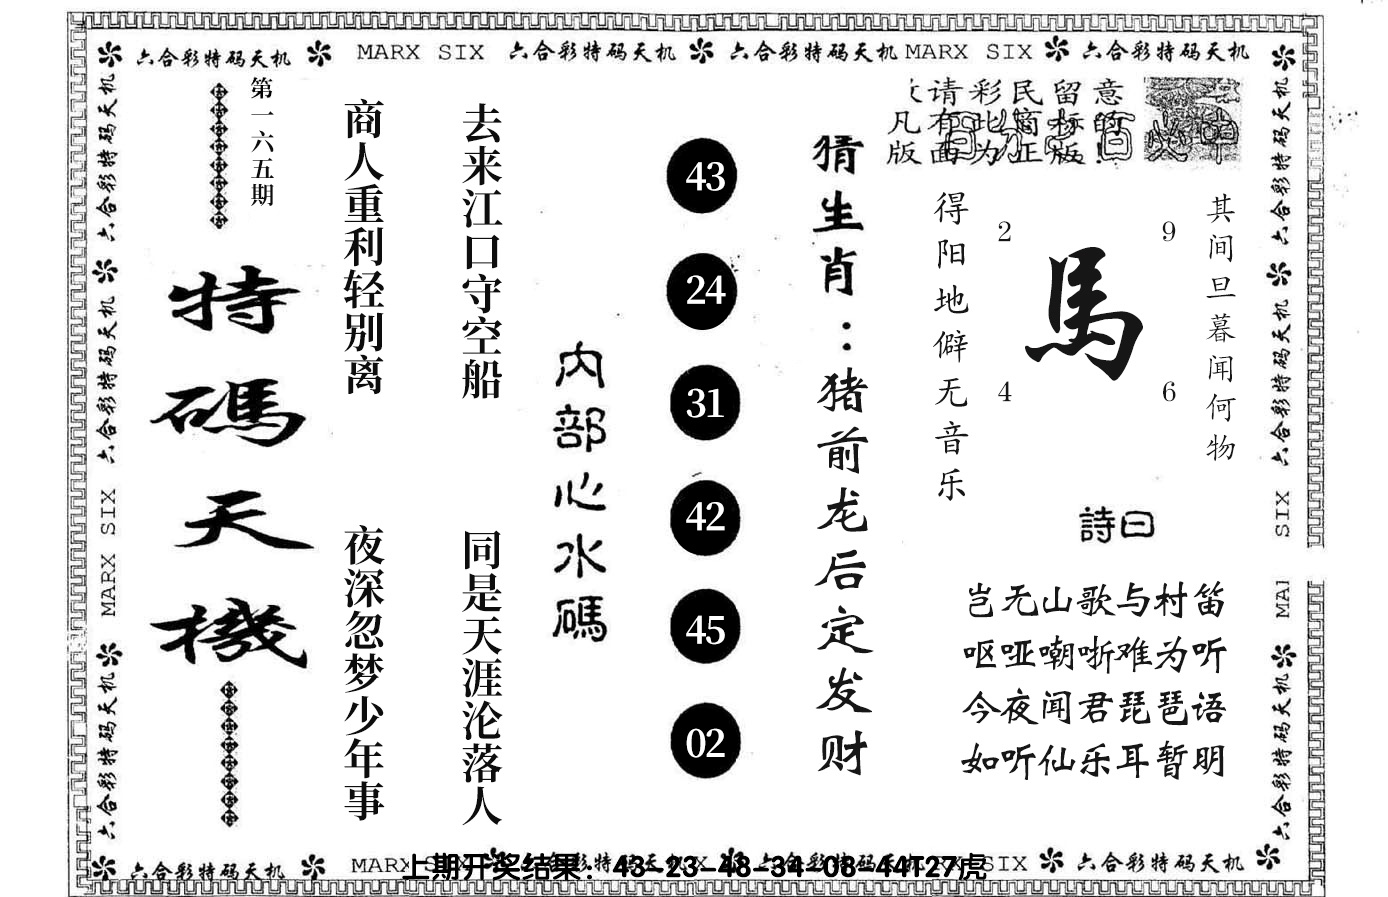 六合彩特码天机 MARX SIX 六合彩特码天机 六合彩特码天机 MARX SIX 六合彩特码天机
六合彩特码天机
六合彩特码天机
MARX SIX
六合彩特码天机
第一六五期
特碼天機
商人重利轻别离
夜深忽梦少年事
去来江口守空船
同是天涯沦落人
内部心水碼
43
24
31
42
45
02
猜生肖：猪前龙后定发财
请彩民留意
凡有此商标的
版面为正版!
得阳地僻无音乐
2
9
馬
4
6
其间旦暮闻何物
詩曰
岂无山歌与村笛
呕哑嘲哳难为听
今夜闻君琵琶语
如听仙乐耳暂明
六合彩特码天机
六合彩特码天机
SIX
MAI
六合彩特码天机
六合彩特码天机
六合彩特码天机
上期开奖结果：43-23-48-34-08-44T27虎